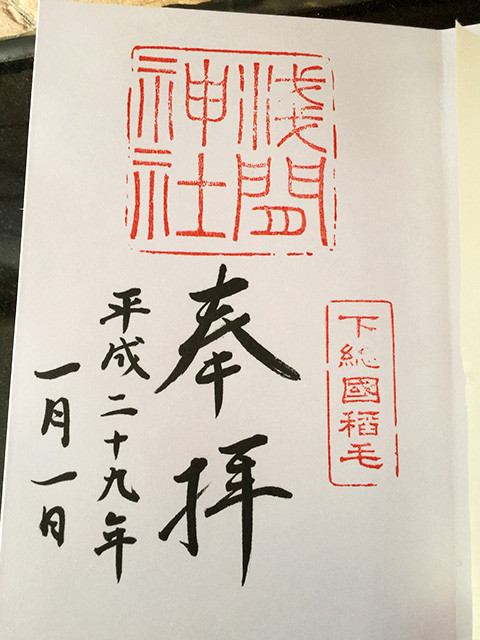 淺間
神社
下総國稲毛
奉拝
平成二十九年
一月一日